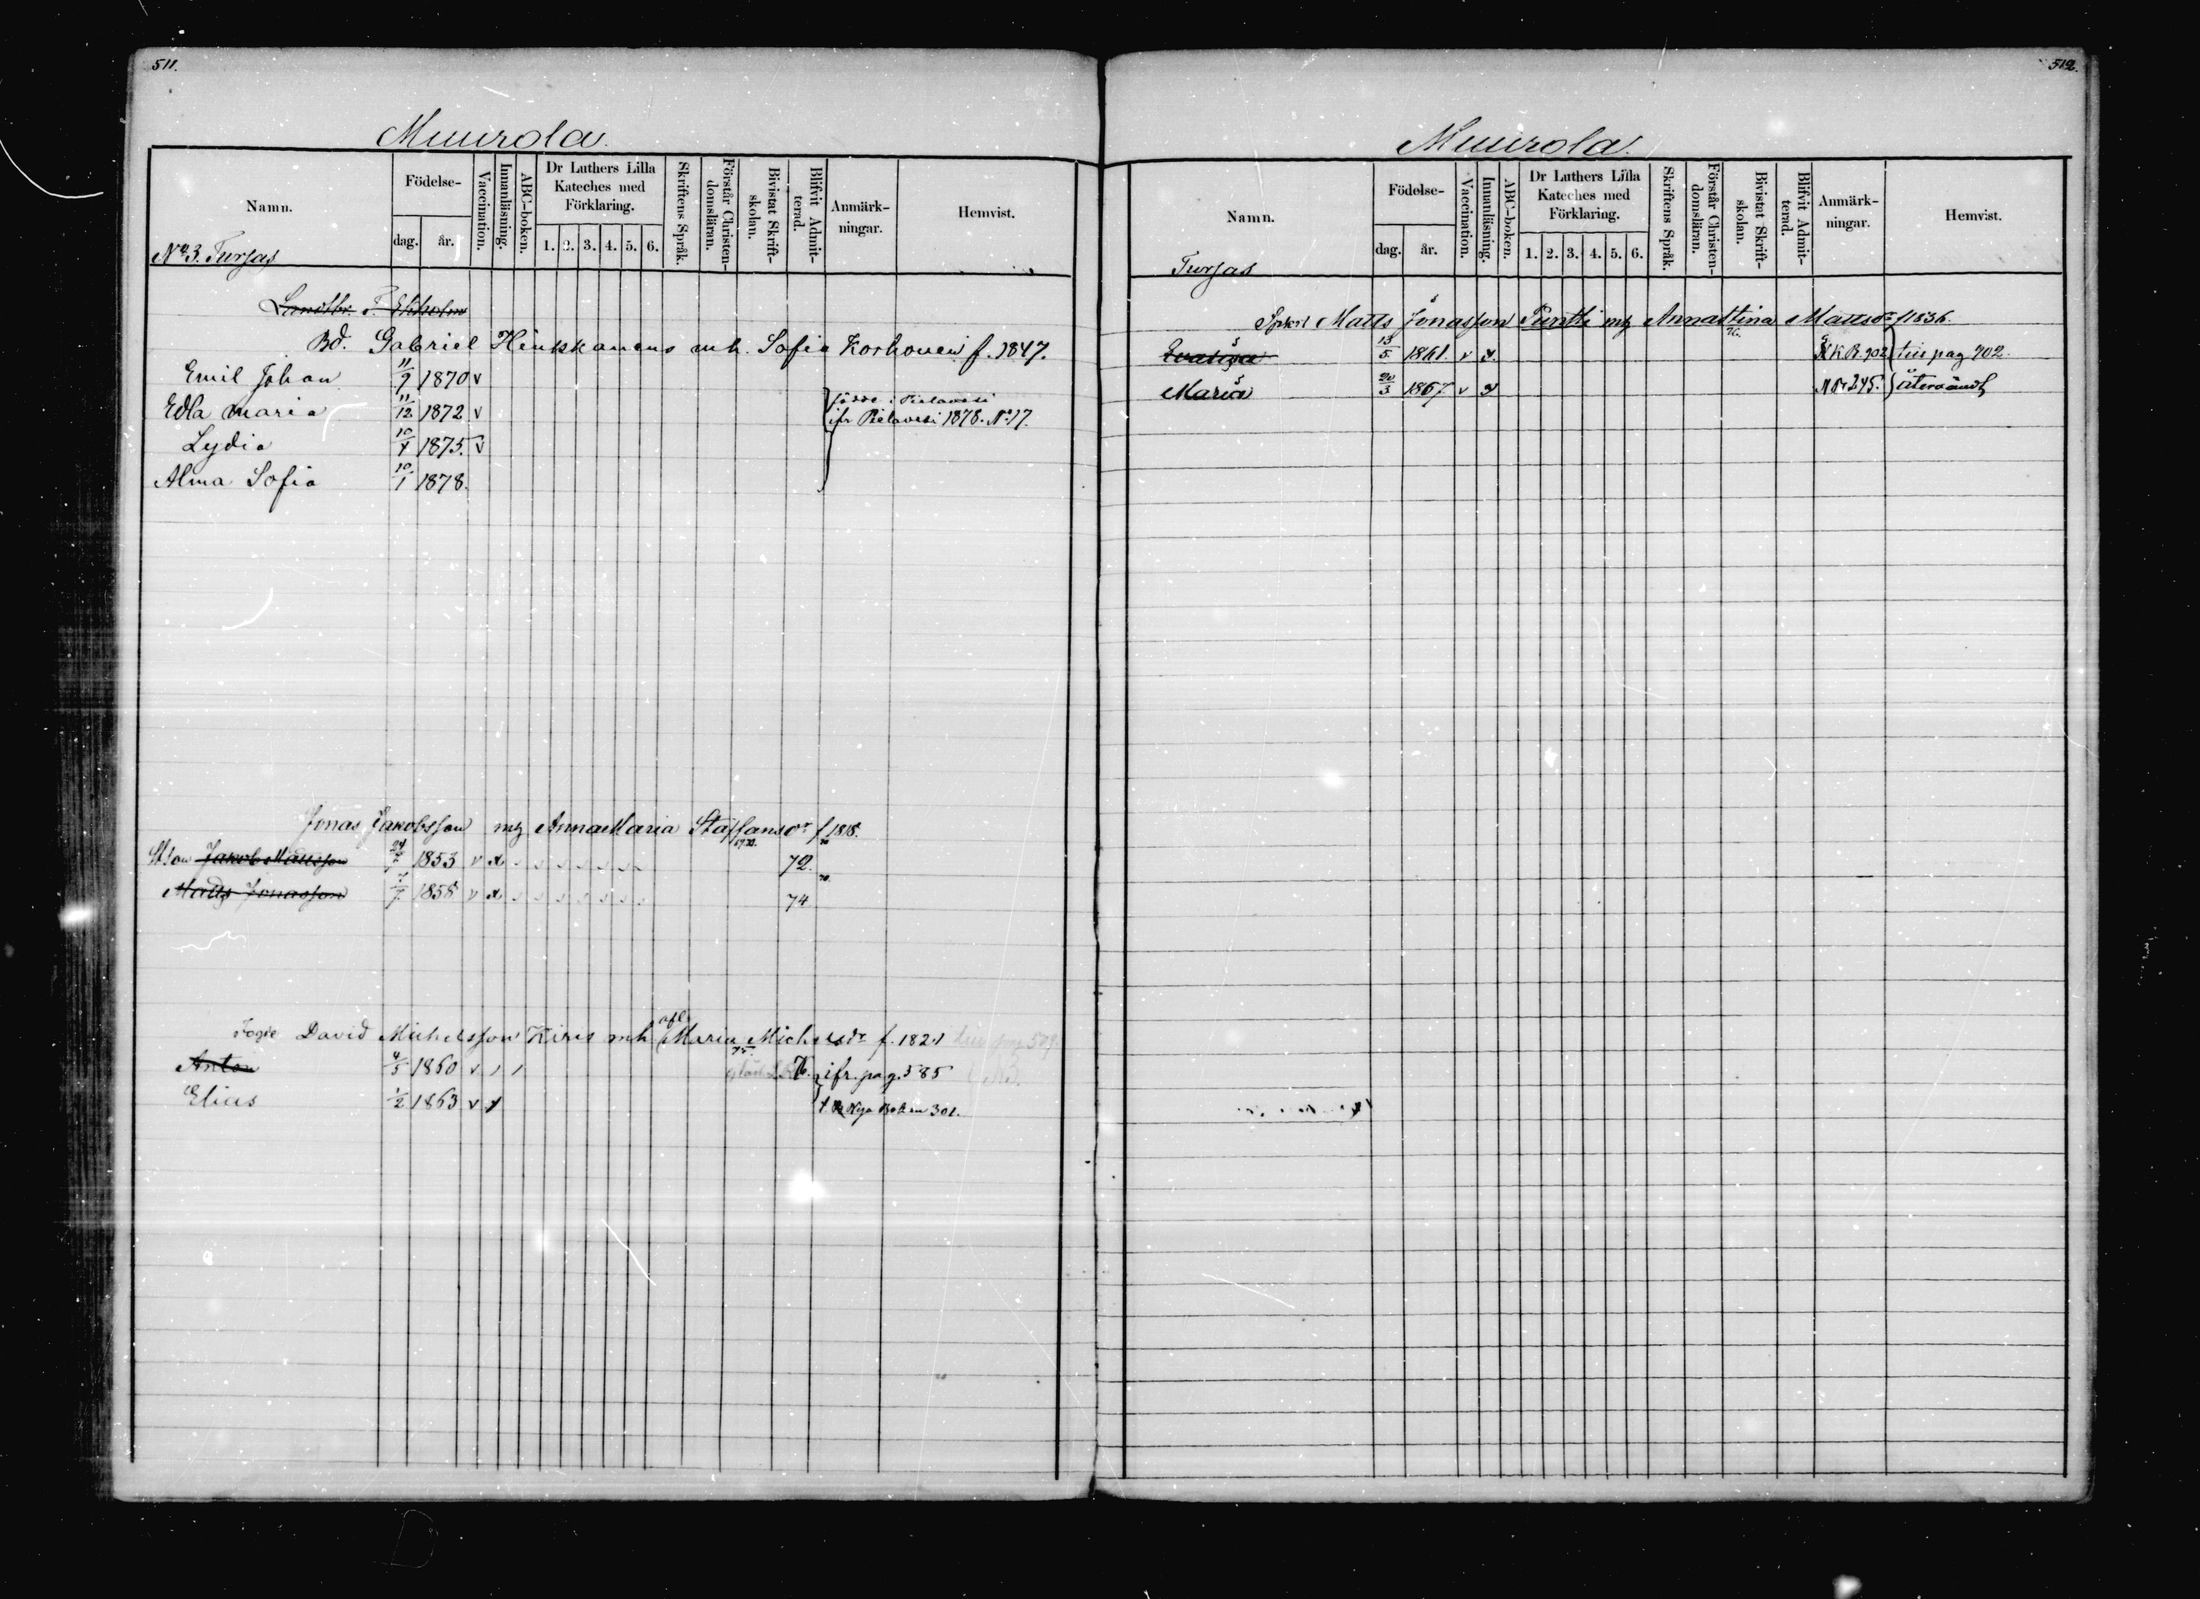 511.
Muurola.
Namn.
Födelse-
dag. år.
Vaccination.
Innanläsning.
ABC-boken.
Dr Luthers Lilla Kateches med Förklaring.
1. 2. 3. 4. 5. 6.
Skriftens Språk.
Förstår Christen-domsläran.
Bivistat Skrift-skolan.
Blifvit Admit-terad.
Anmärk-ningar.
Hemvist.
No 3. Turjas
Landtbr. F. Ekholm
Bd. Gabriel Heikkanens mh. Sofia Korhonen f. 1847.
Emil Johan 11/9 1870 v
Edla Maria 11/12 1872 v
födde i Pielavesi
ifr Pielavesi 1878. No 17.
Lydia 1875. v
Alma Sofia 10/1 1878.
Jonas Jakobsson mtz Anna Maria Staffansdr f 1818.
Jakob Mattsson 1853 v x 72.
Matts Jonasson 1858 v x 74
David Michelsson Kires mh Maria Michelsdr f. 1821
Anton 4/5 1860 v ifr. pag. 585
Elias 1/2 1863 v t. Nya Boken 301.
512.
Muurola.
Namn.
Födelse-
dag. år.
Vaccination.
Innanläsning.
ABC-boken.
Dr Luthers Lilla Kateches med Förklaring.
1. 2. 3. 4. 5. 6.
Skriftens Språk.
Förstår Christen-domsläran.
Bivistat Skrift-skolan.
Blifvit Admit-terad.
Anmärk-ningar.
Hemvist.
Turjas
Matts Jonasson Puntti mtz Annastina Mattsdr f 1836.
Evaliza 13/5 1861. v K.B. 902 till pag 902.
Maria 20/3 1867 v 245. återvändt